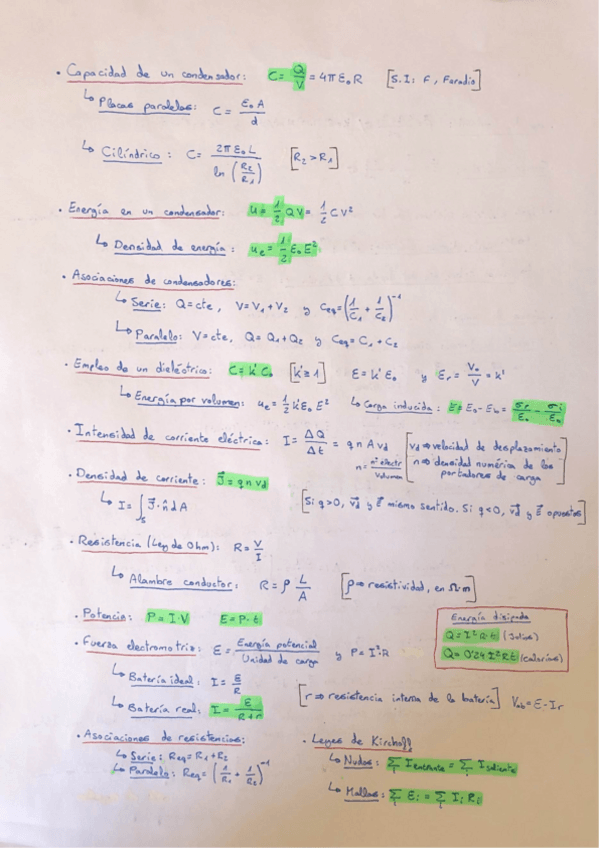 · Capacidad de un condensador: C = Q/V = 4πε₀R [S.I: F, Faradio]
↳ Placas paralelas: C = ε₀A/d
↳ Cilíndrico: C = 2πε₀L / ln(R₂/R₁) [R₂ > R₁]
· Energía en un condensador: U = 1/2 QV = 1/2 CV²
↳ Densidad de energía: uₑ = 1/2 ε₀E²
· Asociaciones de condensadores:
↳ Serie: Q = cte, V = V₁ + V₂ y Ceq = (1/C₁ + 1/C₂)⁻¹
↳ Paralelo: V = cte, Q = Q₁ + Q₂ y Ceq = C₁ + C₂
· Empleo de un dieléctrico: C = k' C₀ [k' ≥ 1] ε = k' ε₀ y εᵣ = V₀/V = k'
↳ Energía por volumen: uₑ = 1/2 k' ε₀ E² ↳ Carga inducida: E = E₀ -
· Intensidad de corriente eléctrica: I = ΔQ/Δt = q n A vd [vd ⇒ velocidad de desplazamiento
n = nº electr/Volumen n ⇒ densidad numérica de los
portadores de carga]
· Densidad de corriente: J⃗ = q n vd
↳ I = ∫ₛ J⃗ · n̂ dA [Si q > 0, v⃗d y E⃗ mismo sentido. Si q < 0, v⃗d y E⃗ opuestos]
· Resistencia (Ley de Ohm): R = V/I
↳ Alambre conductor: R = ρ L/A [ρ ⇒ resistividad, en Ω·m]
· Potencia: P = I·V E = P·t
Energía disipada
Q = I²R·t (Julios)
Q = 0'24 I²Rt (calorías)
· Fuerza electromotriz: E = Energía potencial/Unidad de carga y P = I²·R
↳ Batería ideal: I = E/R
↳ Batería real: I = E/(R+r) [r ⇒ resistencia interna de la batería] Vab = E - Ir
· Asociaciones de resistencias:
↳ Serie: Req = R₁ + R₂
↳ Paralelo: Req = (1/R₁ + 1/R₂)⁻¹
· Leyes de Kirchoff
↳ Nudos: Σ Ientrante = Σ Isaliente
↳ Mallas: Σ Eᵢ = Σ Iᵢ